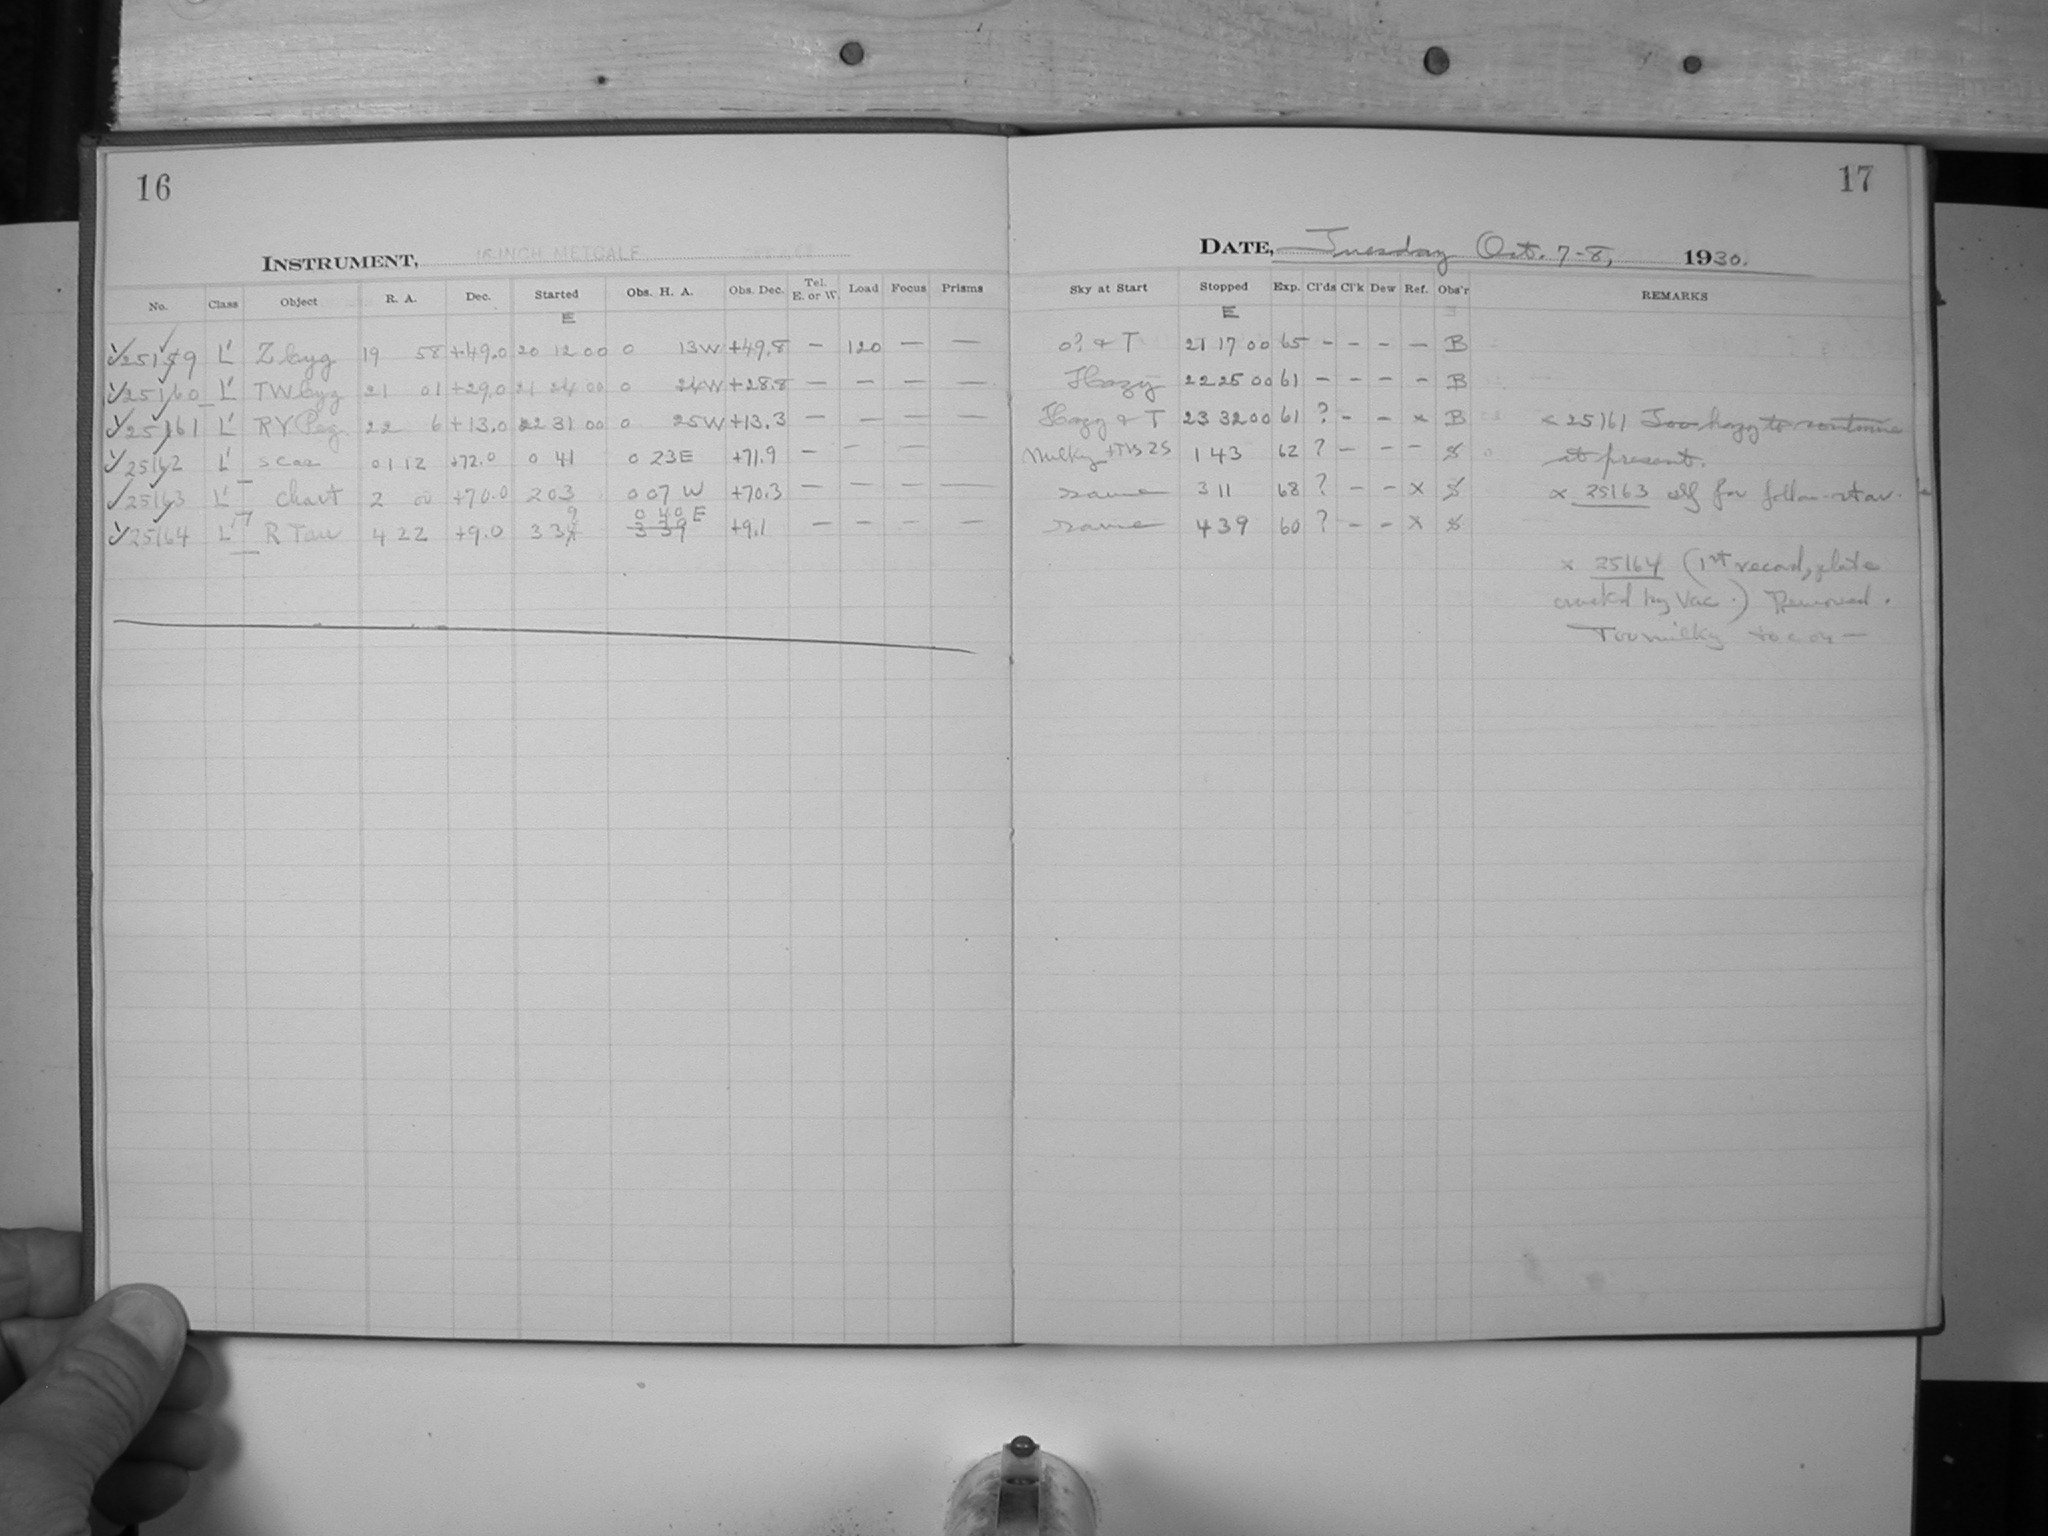 16
17
INSTRUMENT, 16 INCH METCALF
DATE, Tuesday Oct. 7-8, 1930.
No. Class Object R. A. Dec. Started Obs. H. A. Obs. Dec. Tel. E. or W. Load Focus Prisms Sky at Start Stopped Exp. Cl'ds Cl'k Dew Ref. Obs'r REMARKS
E E
25159 L' Z Cyg 19 58 +49.0 20 12 00 0 13W +49.8 — 120 — — 0? & T 21 17 00 65 - - - — B
25160 L' TW Cyg 21 01 +29.0 21 24 00 0 24W +28.8 — — — — Hazy 22 25 00 61 - - - - B
25161 L' RV Peg 22 6 +13.0 22 31 00 0 25W +13.3 — — — — Hazy & T 23 32 00 61 ? - - x B x 25161 Too hazy to continue
25162 L' S Cas 01 12 +72.0 0 41 0 23E +71.9 — — — Milky 1 43 62 ? — - - at present.
25163 L' Chart 2 00 +70.0 2 03 0 07 W +70.3 — — — — same 3 11 68 ? - - x x 25163 off for follow-star.
25164 L' R Tau 4 22 +9.0 3 39 0 40 E 3 39 +9.1 — — — — same 4 39 60 ? - - x
x 25164 (1st record, plate
cracked by Vac.) Removed.
Too milky to c on —